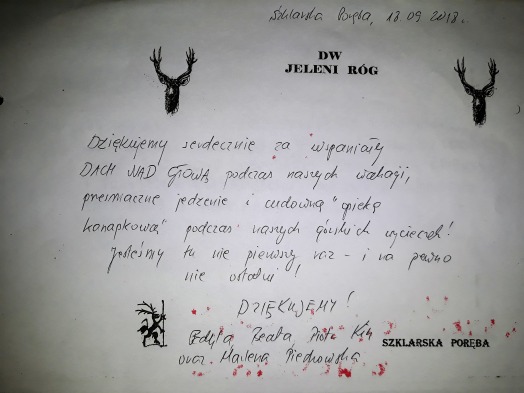 Szklarska Poręba, 18.09.2018r.
DW
JELENI RÓG
Dziękujemy serdecznie za wspaniały
DACH NAD GŁOWĄ podczas naszych wakacji,
przesmaczne jedzenie i cudowną "opieką
kanapkową" podczas naszych górskich wycieczek!
Jesteśmy tu nie pierwszy raz - i na pewno
nie ostatni!
DZIĘKUJEMY!
Edyta Beata, Piotr
oraz Marlena Piechowska
SZKLARSKA PORĘBA